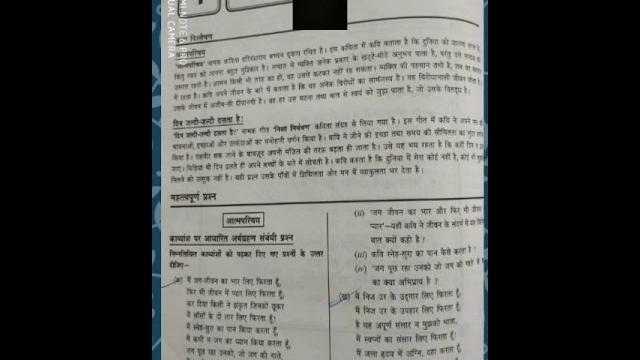 विश्लेषण
आत्मपरिचय
'आत्मपरिचय' नामक कविता हरिवंशराय बच्चन द्वारा रचित है। इस कविता में कवि बताता है कि दुनिया को जानना सरल है,
किंतु स्वयं को जानना बहुत मुश्किल है। समाज में व्यक्ति अनेक प्रकार के खट्टे-मीठे अनुभव पाता है, परंतु
कवि अपने जीवन के बारे में बताता है कि वह अनेक विरोधों का सामंजस्य है।
उसके जीवन में अजीब-सी दीवानगी है। वह हर उस घटना तथा बात से स्वयं को जुड़ा पाता है, जो उसके विरुद्ध है।
दिन जल्दी-जल्दी ढलता है!
'दिन जल्दी-जल्दी ढलता है!' नामक गीत 'निशा निमंत्रण' कविता संग्रह से लिया गया है। इस गीत में कवि ने अपने
भावनाओं, इच्छाओं और उत्कंठाओं का मनोहारी वर्णन किया है। कवि ने जीने की इच्छा तथा समय की सीमितता का सुंदर
किया है। राहगीर थक जाने के बावजूद अपनी मंज़िल की तरफ़ बढ़ता ही जाता है। उसे यह भय रहता है कि कहीं दिन न
जाए। चिड़ियाँ भी दिन ढलते ही अपने बच्चों के बारे में सोचती है। कवि कहता है कि दुनिया में मेरा कोई नहीं है, कोई भी
मिलने को उत्सुक नहीं है। यही प्रश्न उसके पाँवों में शिथिलता और मन में व्याकुलता भर देता है।
महत्वपूर्ण प्रश्न
आत्मपरिचय
काव्यांश पर आधारित अर्थग्रहण संबंधी प्रश्न
निम्नलिखित काव्यांशों को पढ़कर दिए गए प्रश्नों के उत्तर
दीजिए–
(क) मैं जग-जीवन का भार लिए फिरता हूँ,
फिर भी जीवन में प्यार लिए फिरता हूँ,
कर दिया किसी ने झंकृत जिनको छूकर
मैं साँसों के दो तार लिए फिरता हूँ!
मैं स्नेह-सुरा का पान किया करता हूँ,
मैं कभी न जग का ध्यान किया करता हूँ,
जग पूछ रहा उनको, जो जग की गाते,
(ii) 'जग जीवन का भार और फिर भी जीवन
प्यार'–यहाँ कवि ने जीवन के संदर्भ में
बात क्यों कही है ?
(iii) कवि स्नेह-सुरा का पान कैसे करता है ?
(iv) 'जग पूछ रहा उनको जो जग की गाते'
का क्या अभिप्राय है ?
(ख) मैं निज उर के उद्गार लिए फिरता हूँ,
मैं निज उर के उपहार लिए फिरता हूँ,
है यह अपूर्ण संसार न मुझको भाता,
मैं स्वप्नों का संसार लिए फिरता हूँ!
मैं जला हृदय में अग्नि, दहा करता हूँ,